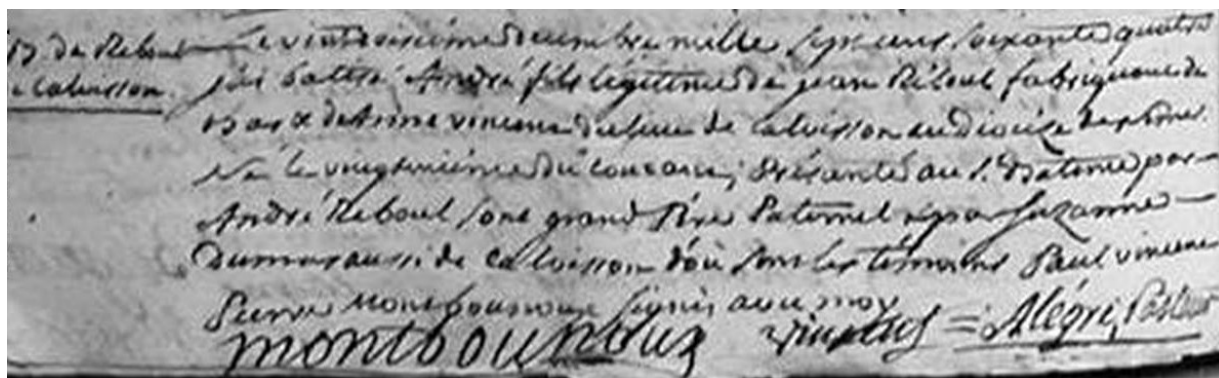 B. de Reboul
a Calvisson.
Le vintroisième decembre mille sept cens soixante quatre
j'ai batisé André fils légitime de jean Reboul fabriquant de
bas & de Anne vincens du lieu de Calvisson au diocèze de
Né le du courant; Présanté au St. Batême par
André Reboul sont grand Père Paternel & par Suzanne
Dumas aussi de Calvisson d'où sont les témoins Paul vincens
Pierre Montbounoux signés avec moy
montbounoux vincens = Alégre, Pasteur